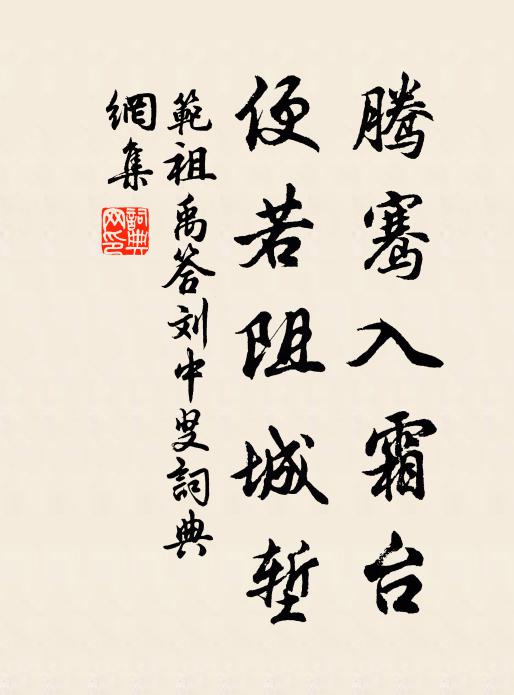 腾骞入霜台
便若阻城堑
範祖禹答刘中叟詞典
網集
詞典
网印